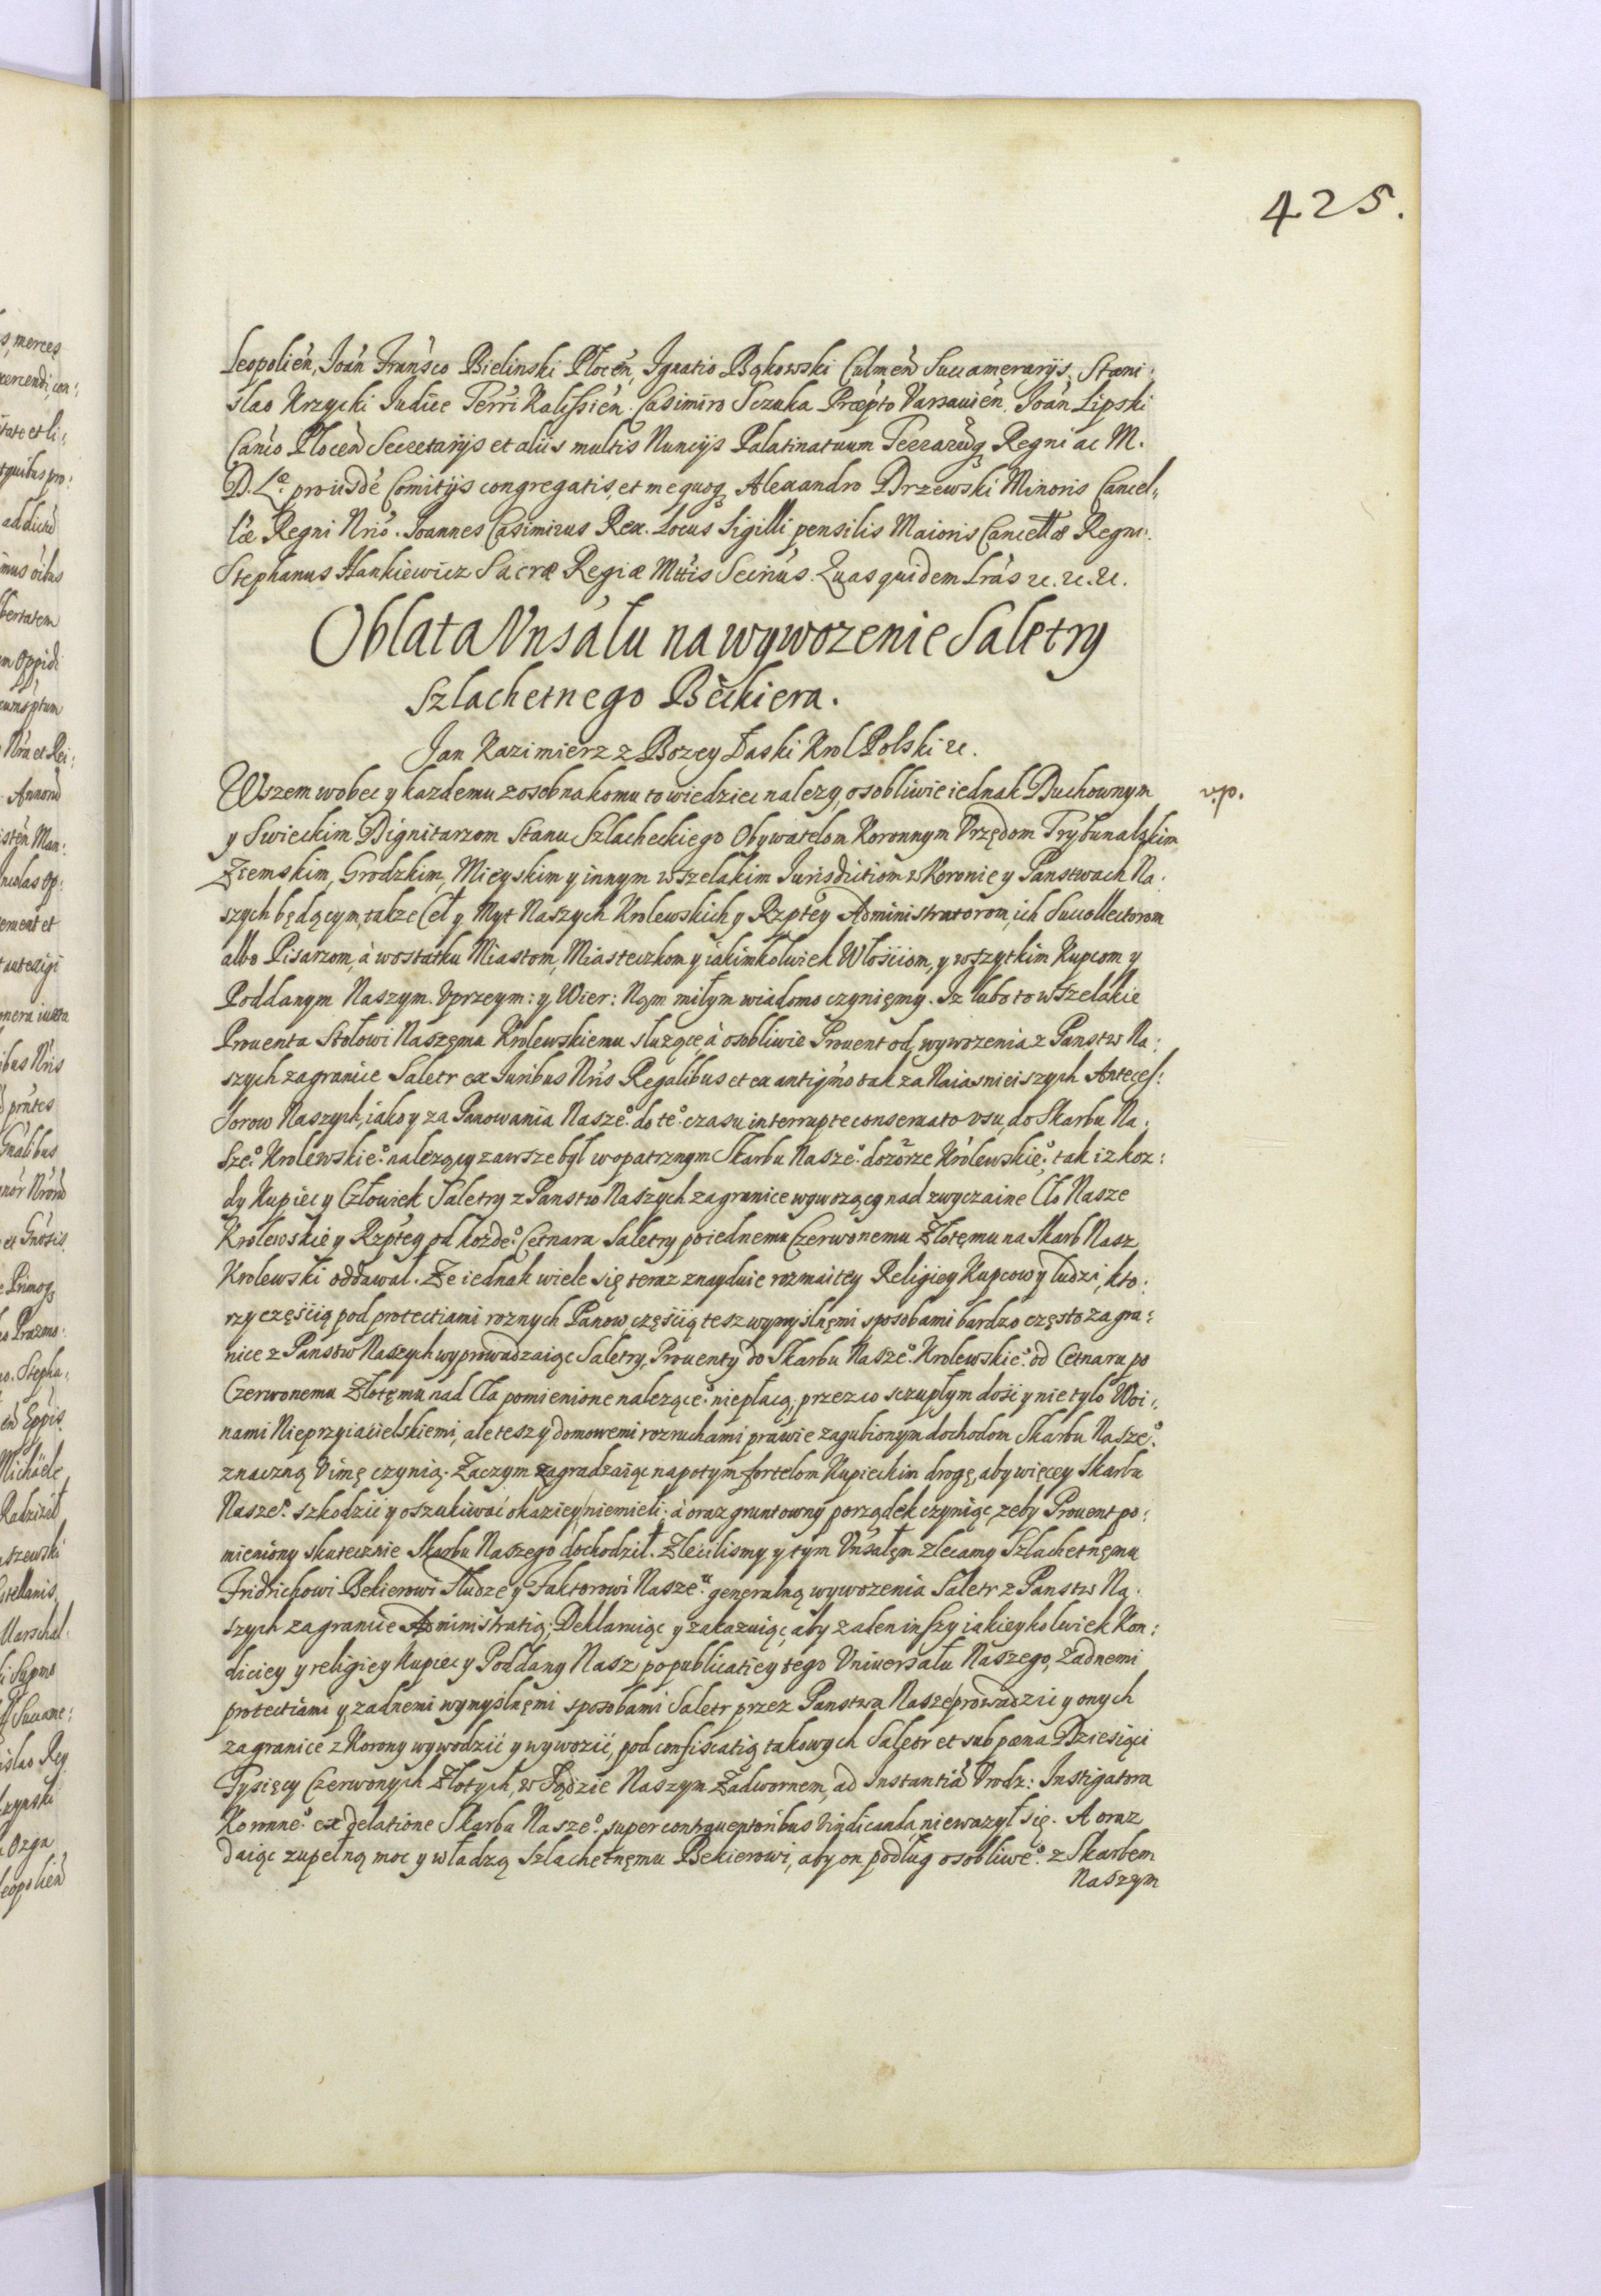 425.
Leopolien̄, Joan̄ Fran̄sco Bielinski Płocen̄, Ignatio Bąkowski Culmen̄ Succamerarijs. Stani:
slao Krzycki Iudice Terri Kalissien̄. Casimiro Sczuka Præpto Varsauien̄. Joan̄ Lipski
Can̄co Płocen̄ Secretarijs et aliis multis Nuncijs Palatinatuum Terrarumq Regni ac M.
D. L. pro iisdē Comitijs congregatis, et me quoq Alexandro Drzewski Minoris Cancel„
læ Regni Nr̄io. Joannes Casimirus Rex. Locus Sigilli pensilis Maioris Cancellæ Regni.
Stephanus Hankiewicz Sacræ Regiæ Mttis Secriūs. Quas quidem Lrās &. &. &.
Oblata Vnsału na wywozenie Saletry
Szlachetnego Beckiera.
Jan Kazimierz z Bozey Łaski Krol Polski &.
Wszem wobec y kazdemu zosobna komu to wiedziec nalezy, osobliwie iednak Duchownym
v.p.
y Swieckim Dignitarzom Stanu Szlacheckiego Obywatelom Koronnym Vrzędom Trybunalskim
Ziemskim, Grodzkim, Mieyskim y innym wszelakim Jurisdictiom w Koronie y Panstwach Na:
szych będącym, takze Ceł y Myt Naszych Krolewskich y Rzptey Administratorom, ich Succollectorom
albo Pisarzom, à wostatku Miastom, Miasteczkom y iakimkolwiek Włościom, y wszytkim Kupcom y
Poddanym Naszym. Vprzeym: y Wier: Nąm miłym wiadomo czynięmy. Iz lubo to wszelakie
Prouenta Stołowi Naszęmu Krolewskiemu służące, à osobliwie Prouent od wywozenia z Panstw Na:
szych zagranice Saletr ex Iuribus Nr̄is Regalibus et ex antiq̄mo tak za Naiasnieiszych Antecess:
sorow Naszych, iako y za Panowania Nasze.º do te.º czasu interrupte conseruato vsu, do Skarbu Na:
sze.º Krolewskie.º nalezący zawsze był w opatrznym Skarbu Nasze.º dozorze Krolewskie.º, tak iz koz:
dy Kupiec y Człowiek Saletry z Panstw Naszych zagranice wywozący nad zwyczaine Cło Nasze
Krolewskie y Rzptey od kozde.º Cetnara Saletry po iednemu Czerwonemu Złotęmu na Skarb Nasz
Krolewski oddawał. Ze iednak wiele się teraz znayduie rozmaitey Religiey Kupcow y ludzi, kto:
rzy częścią pod protectiami roznych Panow częścią tesz wymyślnęmi sposobami bardzo często zagra:
nice z Panstw Naszych wyprowadzaiąc Saletry, Prouenty do Skarbu Nasze.º Krolewskie.º od Cetnaru po
Czerwonemu Złotęmu nad Cła pomienione nalezące.º niepłacą, przez co sczupłym dość y nie tylo Woi:
nami Nieprzyiacielskiemi, ale tesz y domowemi rozruchami prawie zagubionym dochodom Skarbu Nasze.º
znaczną Vimę czynią. Zaczym zagradzaiąc na potym fortelom Kupieckim drogę, aby więcey Skarbu
Nasze.º szkodzić y oszukiwać okaziey niemieli; à oraz gruntowny porządek czyniąc, zeby Prouent po:
mieniony skutecznie Skarbu Naszego dochodził. Zlecilismy y tym Vnsałęm zlecamy Szlachetnęmu
Fridrichowi Bekierowi Słudze y Faktorowi Nasze.u generalną wywozenia Saletr z Panstw Na:
szych zagranice Administratią; Deklaruiąc y zakazuiąc, aby zaden inszy iakieykolwiek Kon:
diciey y religiey Kupiec y Poddany Nasz po publicatiey tego Vniuersału Naszego, Zadnemi
protectiami y zadnemi wymyślnęmi sposobami Saletr przez Panstwa Nasze prowadzić y onych
zagranice z Korony wywodzić y wywozić, pod confiscatią takowych Saletr et sub pœna Dziesiąci
Tysięcy Czerwonych Złotych, w Sądzie Naszym Zadwornem, ad Instantiā Vrodz: Instigatora
Koronne.º ex delatione Skarbu Nasze.º super contrauentoribus vindicanda, niewazył się. A oraz
daiąc zupełną moc y władzą Szlachetnęmu Bekierowi, aby on podług osobliwe.º z Skarbem
Naszym